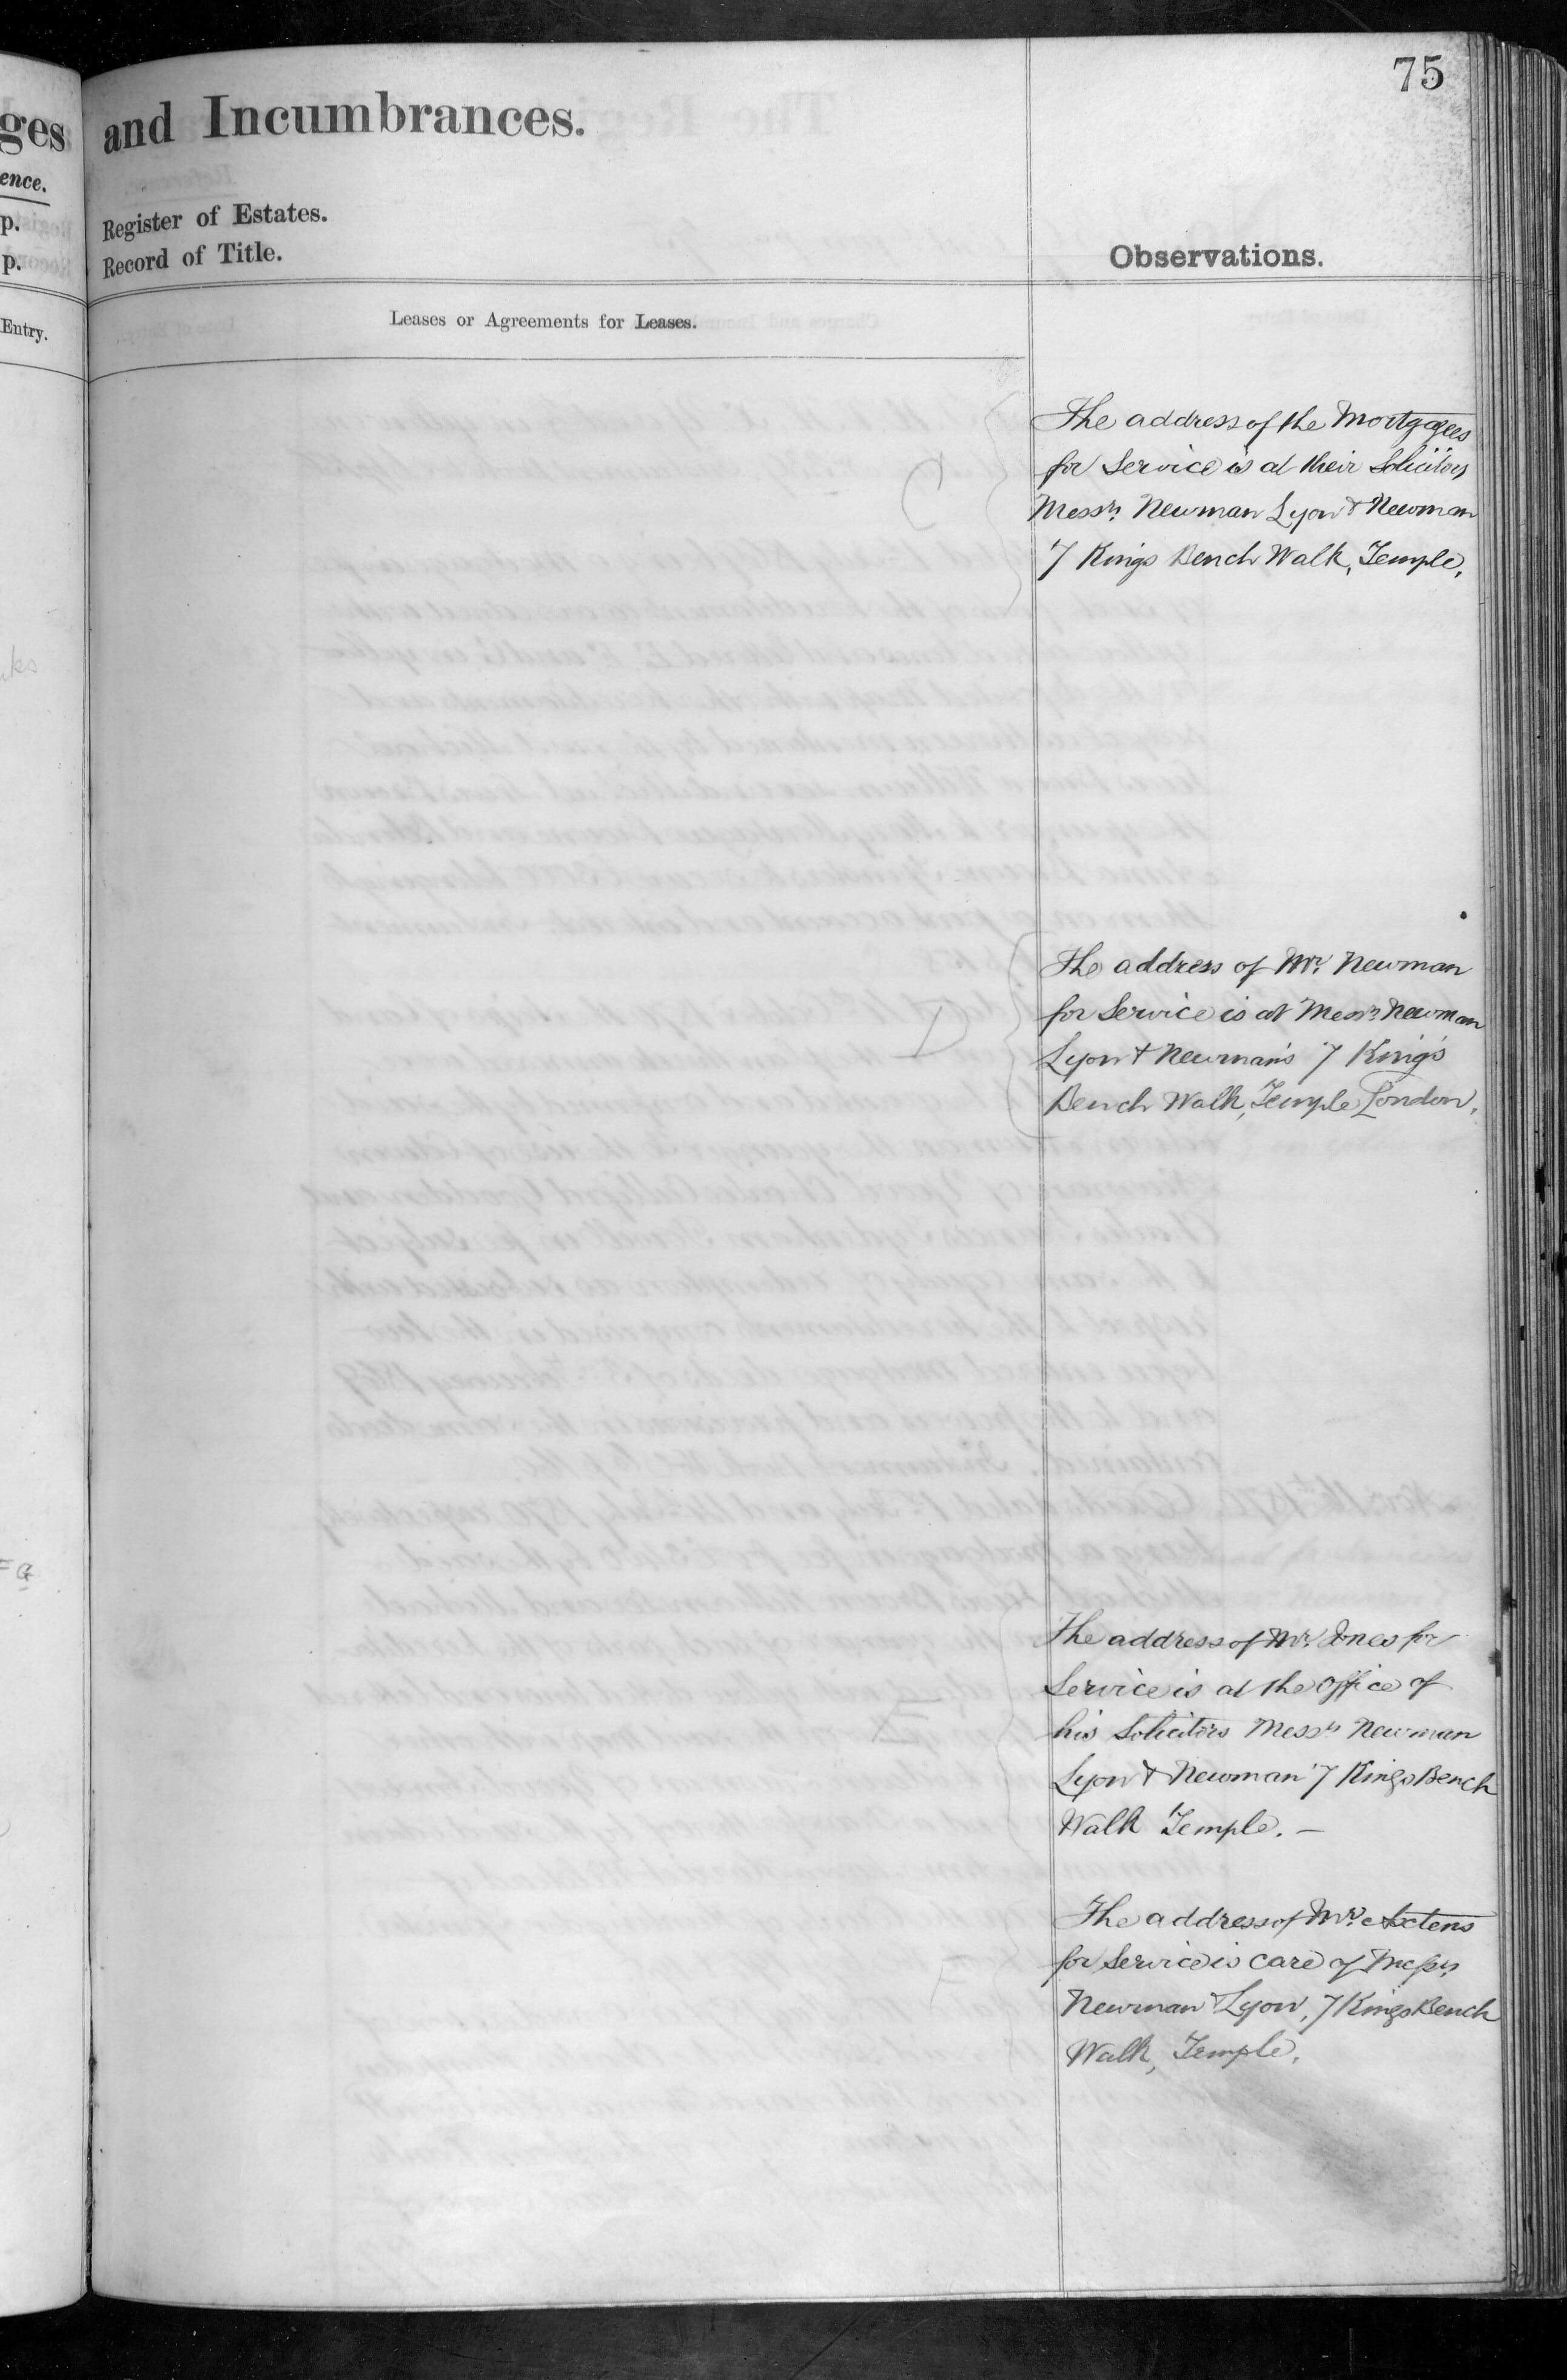 75
and Incumbrances.
Register of Estates.
Record of Title.
Observations.
Leases or Agreements for Leases.
ges
ence.
p.
p.
Entry.
C
The address of the Mortgagees
for Service is at their Solicitors
Messrs. Newman Lyon & Newman
7 Kings Bench Walk, Temple.
D
The address of Mr. Newman
for Service is at Messrs. Newman
Lyon & Newman's 7 King's
Bench Walk, Temple London.
E
The address of Mr. Jones for
Service is at the office of
his Solicitors Messrs Newman
Lyon & Newman 7 Kings Bench
Walk Temple. —
F
The address of Mr.
for Service is care of Messrs.
Newman & Lyon, 7 Kings Bench
Walk, Temple.